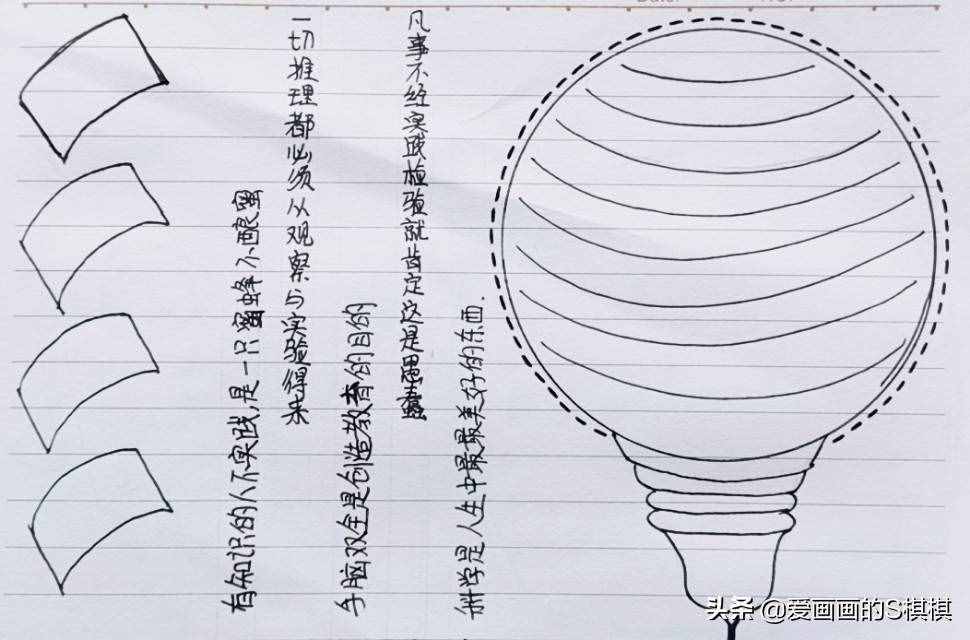 有知识的人不实践,是一只蜜蜂不酿蜜
一切推理都必须从观察与实验得来
手脑双全是创造教育的目的
凡事不经实践检验就肯定这是愚蠢
科学是人生中最最美好的东西.
头条 @爱画画的S棋棋